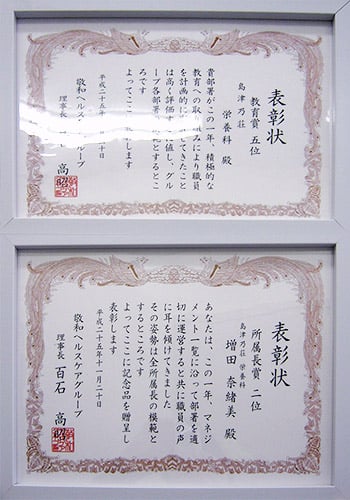 表彰状
教育賞 五位
島津乃荘
栄養科 殿
貴部署がこの一年、積極的な
教育への取り組みにより職員
を計画的に
てきたこと
は高く評価す
値し、グル
ープ各部署
範とするとこ
ろです
よってここ
します
平成二十五年
十日
敬和ヘルス
ループ
理事長
高昭
表彰状
所属長賞 二位
島津乃荘 栄養科
増田 奈緒美 殿
あなたは、この一年、マネジ
メント一覧に沿って部署を適
切に運営すると共に職員の声
に耳を傾けてきました
その姿勢は全所属長の模範と
するところです
よってここに記念品を贈呈し
表彰します
平成二十五年十一月二十日
敬和ヘルスケアグループ
理事長 百石 高昭